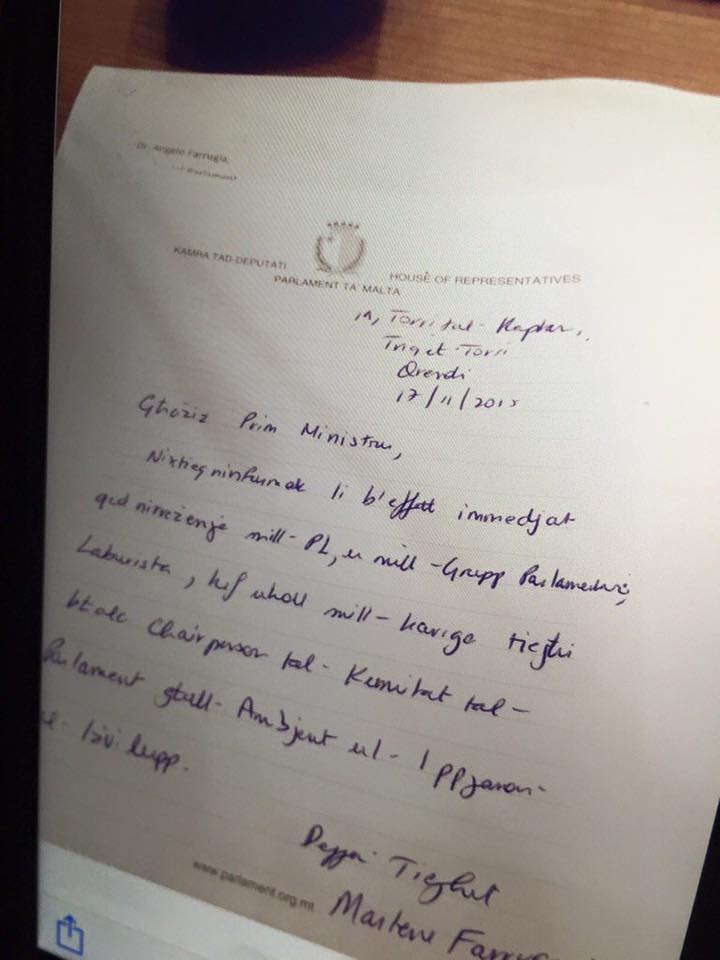 Dr. Angelo Farrugia,
KAMRA TAD-DEPUTATI
HOUSE OF REPRESENTATIVES
PARLAMENT TA' MALTA
Torri tal-Kaptan,
Triq it-Torri
Qrendi
17/11/2015
Għażiż Prim Ministru,
Nixtieq ninfurmak li b'effett immedjat
qed nirreżenja mill-PL, u mill-Grupp Parlamentari
Laburista, kif ukoll mill-kariga tiegħi
bħala Chairperson tal-Kumitat tal-
Parlament għall-Ambjent u l-Ippjanar
tal-Iżvilupp.
Dejjem Tiegħek
Marlene Farrugia
www.parlament.org.mt